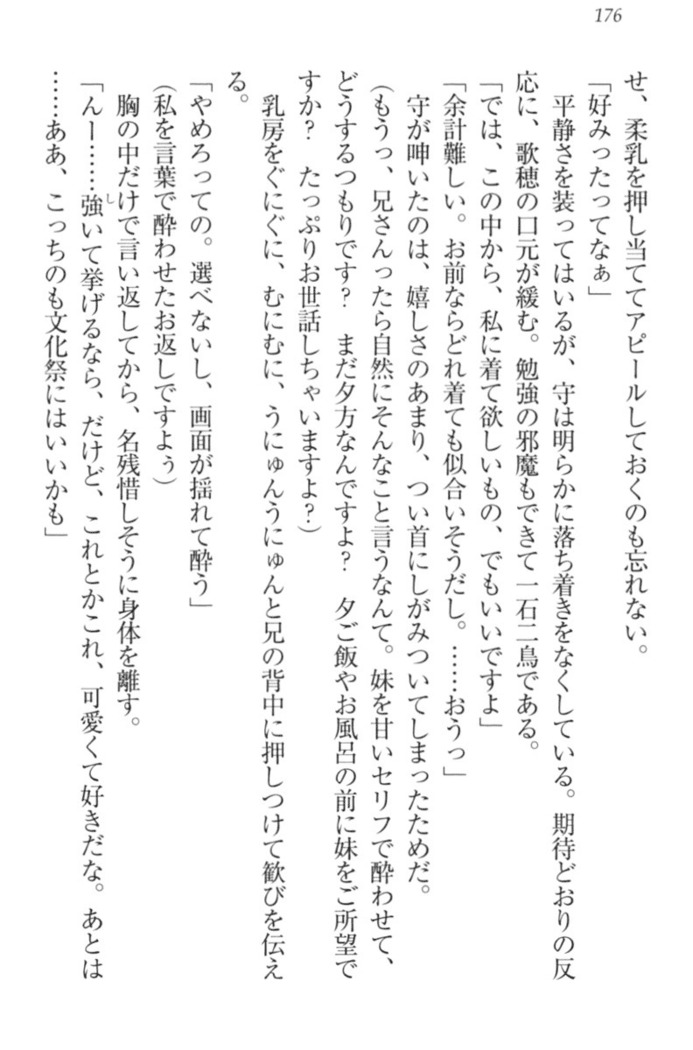 176
せ、柔乳を押し当ててアピールしておくのも忘れない。
「好みったってなぁ」
　平静さを装ってはいるが、守は明らかに落ち着きをなくしている。期待どおりの反
応に、歌穂の口元が緩む。勉強の邪魔もできて一石二鳥である。
「では、この中から、私に着て欲しいもの、でもいいですよ」
「余計難しい。お前ならどれ着ても似合いそうだし。……おうっ」
　守が呻いたのは、嬉しさのあまり、つい首にしがみついてしまったためだ。
（もうっ、兄さんったら自然にそんなこと言うなんて。妹を甘いセリフで酔わせて、
どうするつもりです？　まだ夕方なんですよ？　夕ご飯やお風呂の前に妹をご所望で
すか？　たっぷりお世話しちゃいますよ？）
　乳房をぐにぐに、むにむに、うにゅんうにゅんと兄の背中に押しつけて歓びを伝え
る。
「やめろっての。選べないし、画面が揺れて酔う」
（私を言葉で酔わせたお返しですよぅ）
　胸の中だけで言い返してから、名残惜しそうに身体を離す。
「んー……強しいて挙げるなら、だけど、これとかこれ、可愛くて好きだな。あとは
……ああ、こっちのも文化祭にはいいかも」